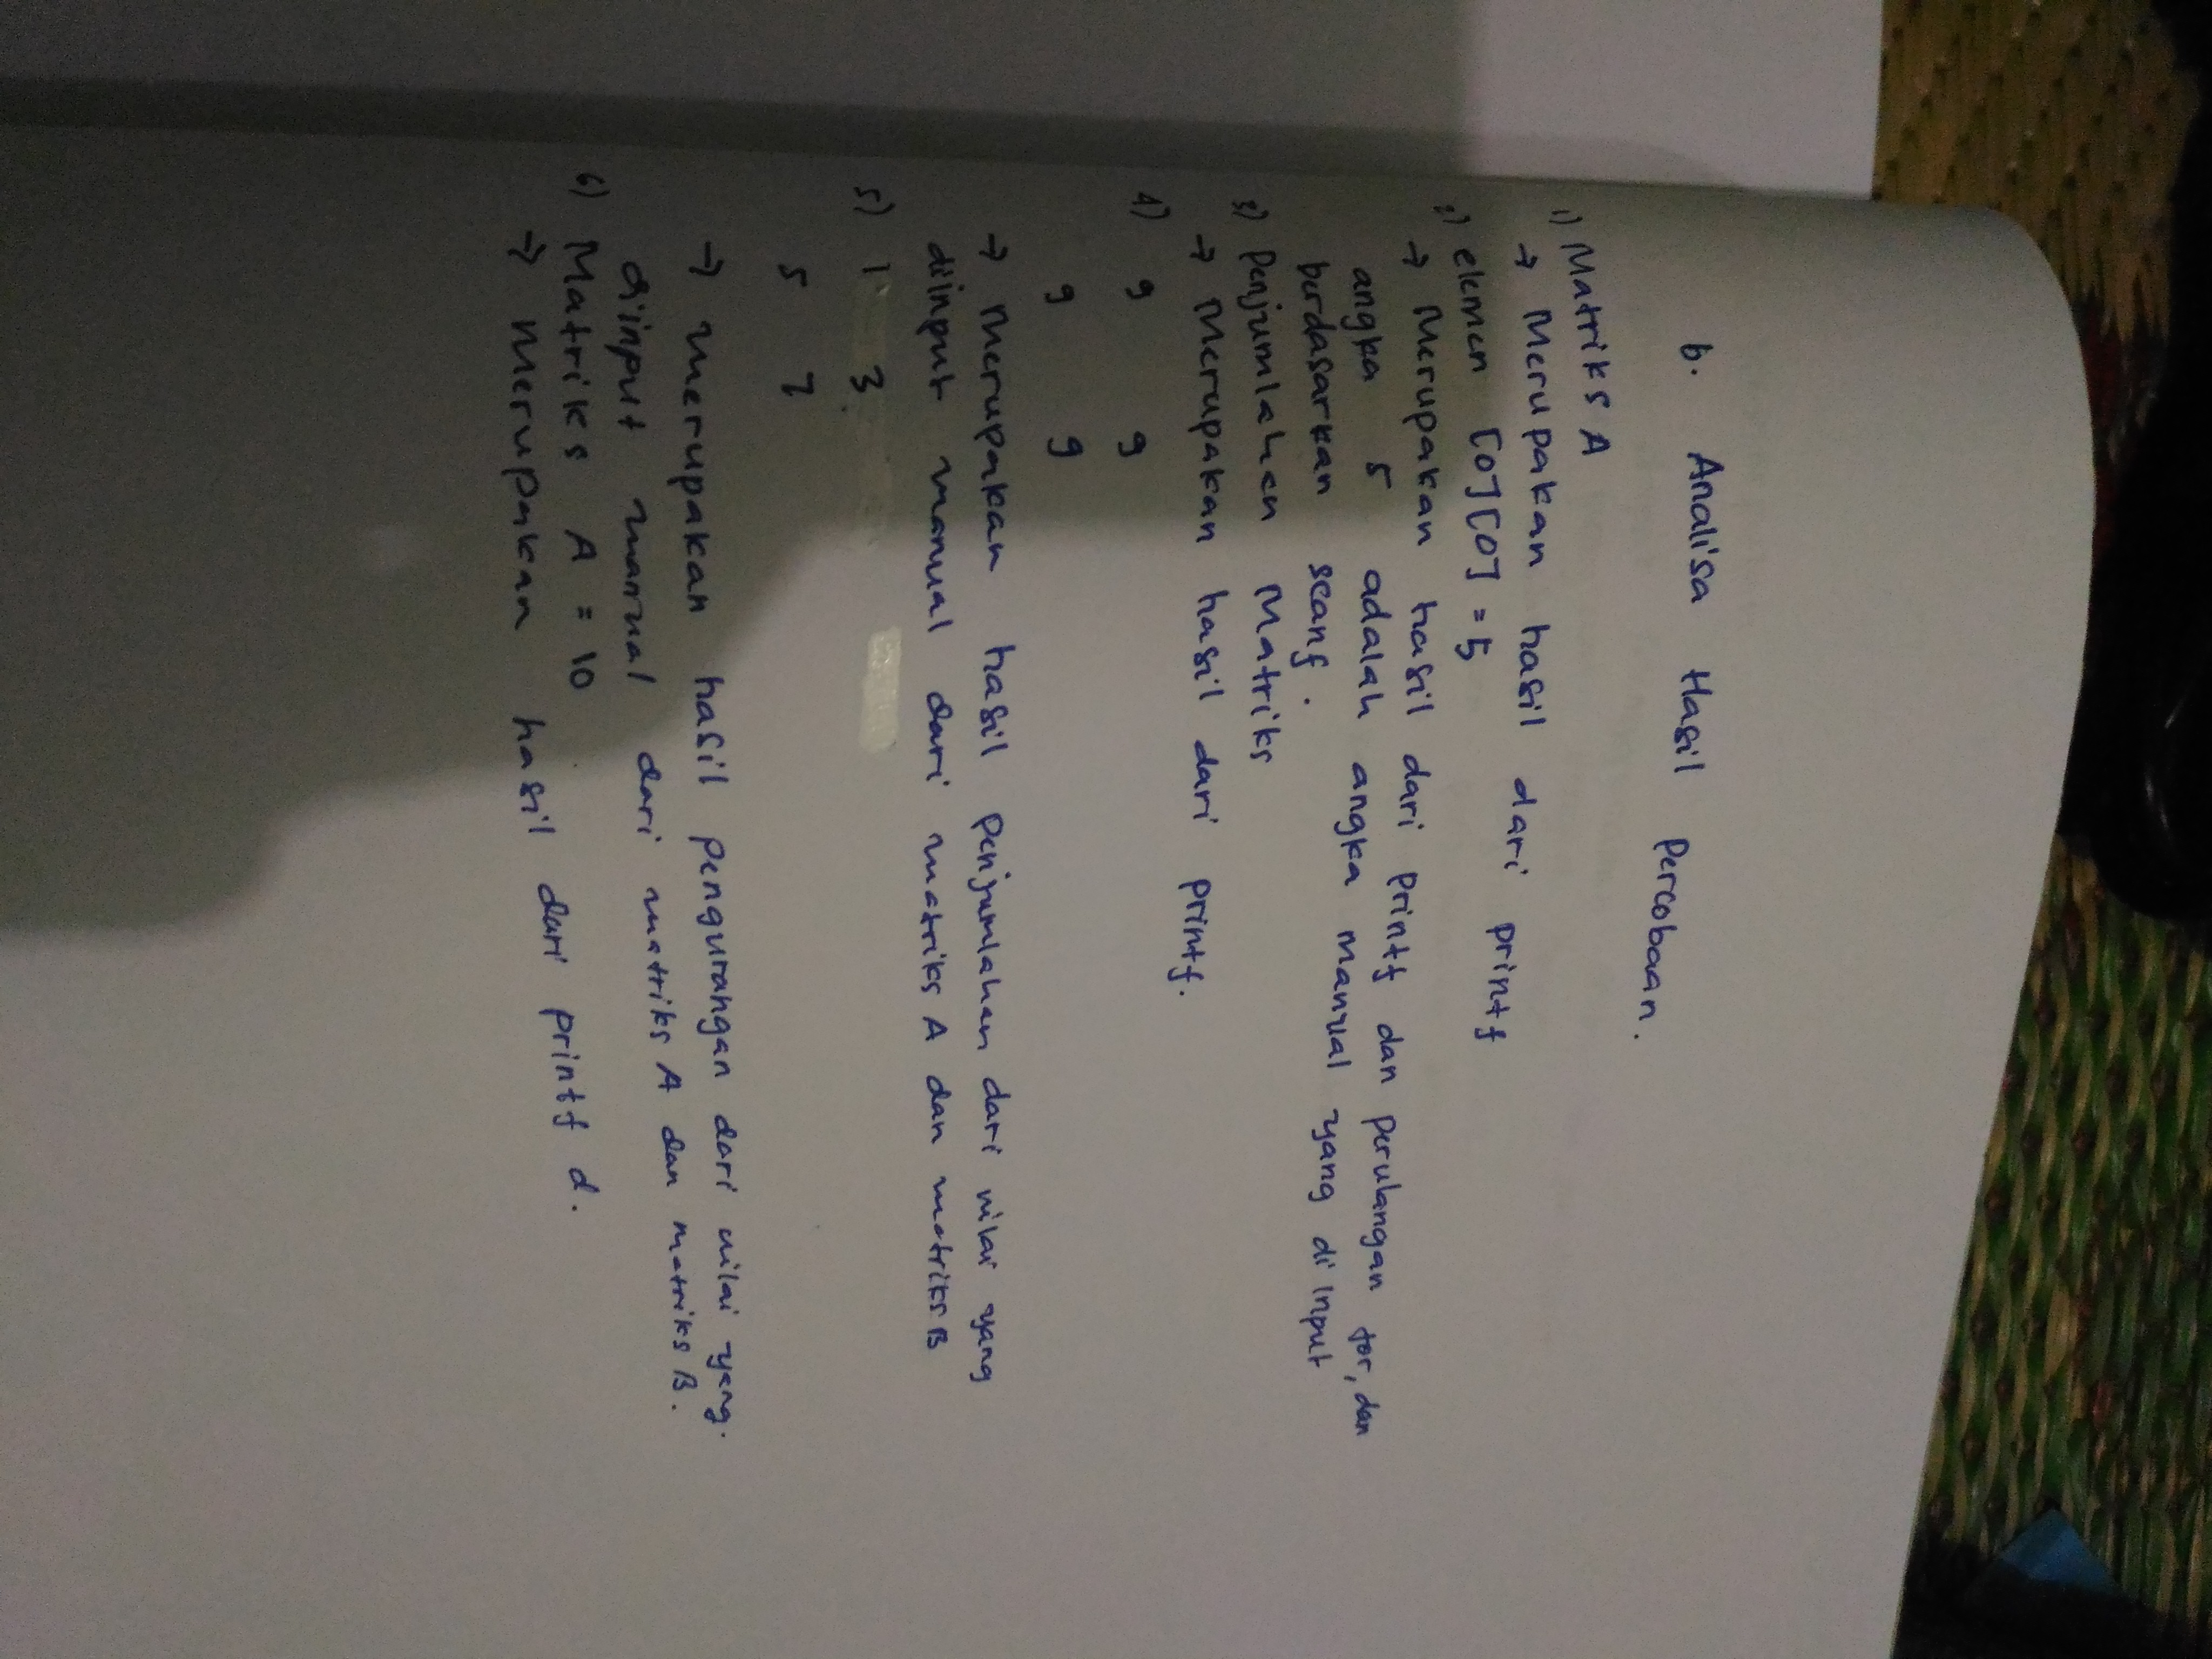 b. Analisa Hasil Percobaan.
1) Matriks A
→ Merupakan hasil dari printf
2) elemen [0][0] = 5
→ Merupakan hasil dari printf dan perulangan for, dan
angka 5 adalah angka manual yang di input
berdasarkan scanf.
3) Penjumlahan Matriks
→ Merupakan hasil dari printf.
4) 9 9
9 9
→ Merupakan hasil penjumlahan dari nilai yang
diinput manual dari matriks A dan matriks B
5) 1 3
5 7
→ merupakan hasil pengurangan dari nilai yang.
diinput manual dari matriks A dan matriks B.
6) Matriks A = 10
→ Merupakan hasil dari printf d.